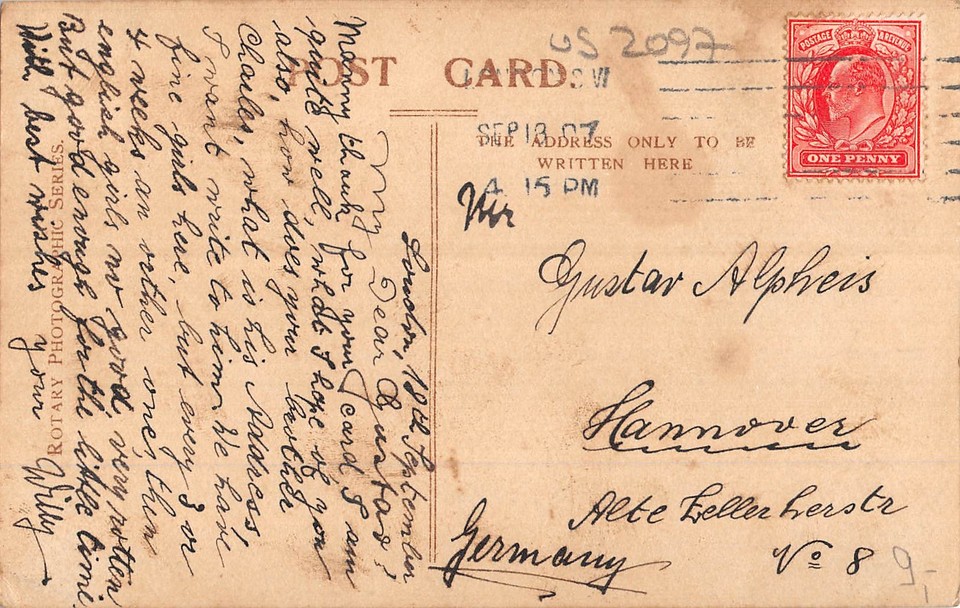 POST CARD.
THE ADDRESS ONLY TO BE
WRITTEN HERE
ROTARY PHOTOGRAPHIC SERIES.
US 2097
LONDON S.W
SEP 18 07
4. 15 PM
POSTAGE REVENUE
ONE PENNY
London, 18th September
My Dear Gustav!
Manny thank for your card, I am
quite well, whats I hope of you
also, how does your brother
Charles, what is his Address,
I want write to him. We have
fine girls here, but every 3 or
4 weeks an orther one, then
english girls no good, very rotten
But good enough for the little time.
With best wishes
your Willy
Mr
Gustav Alpheis
Hannover
Alte Zellerherstr
No 8
Germany
9,-